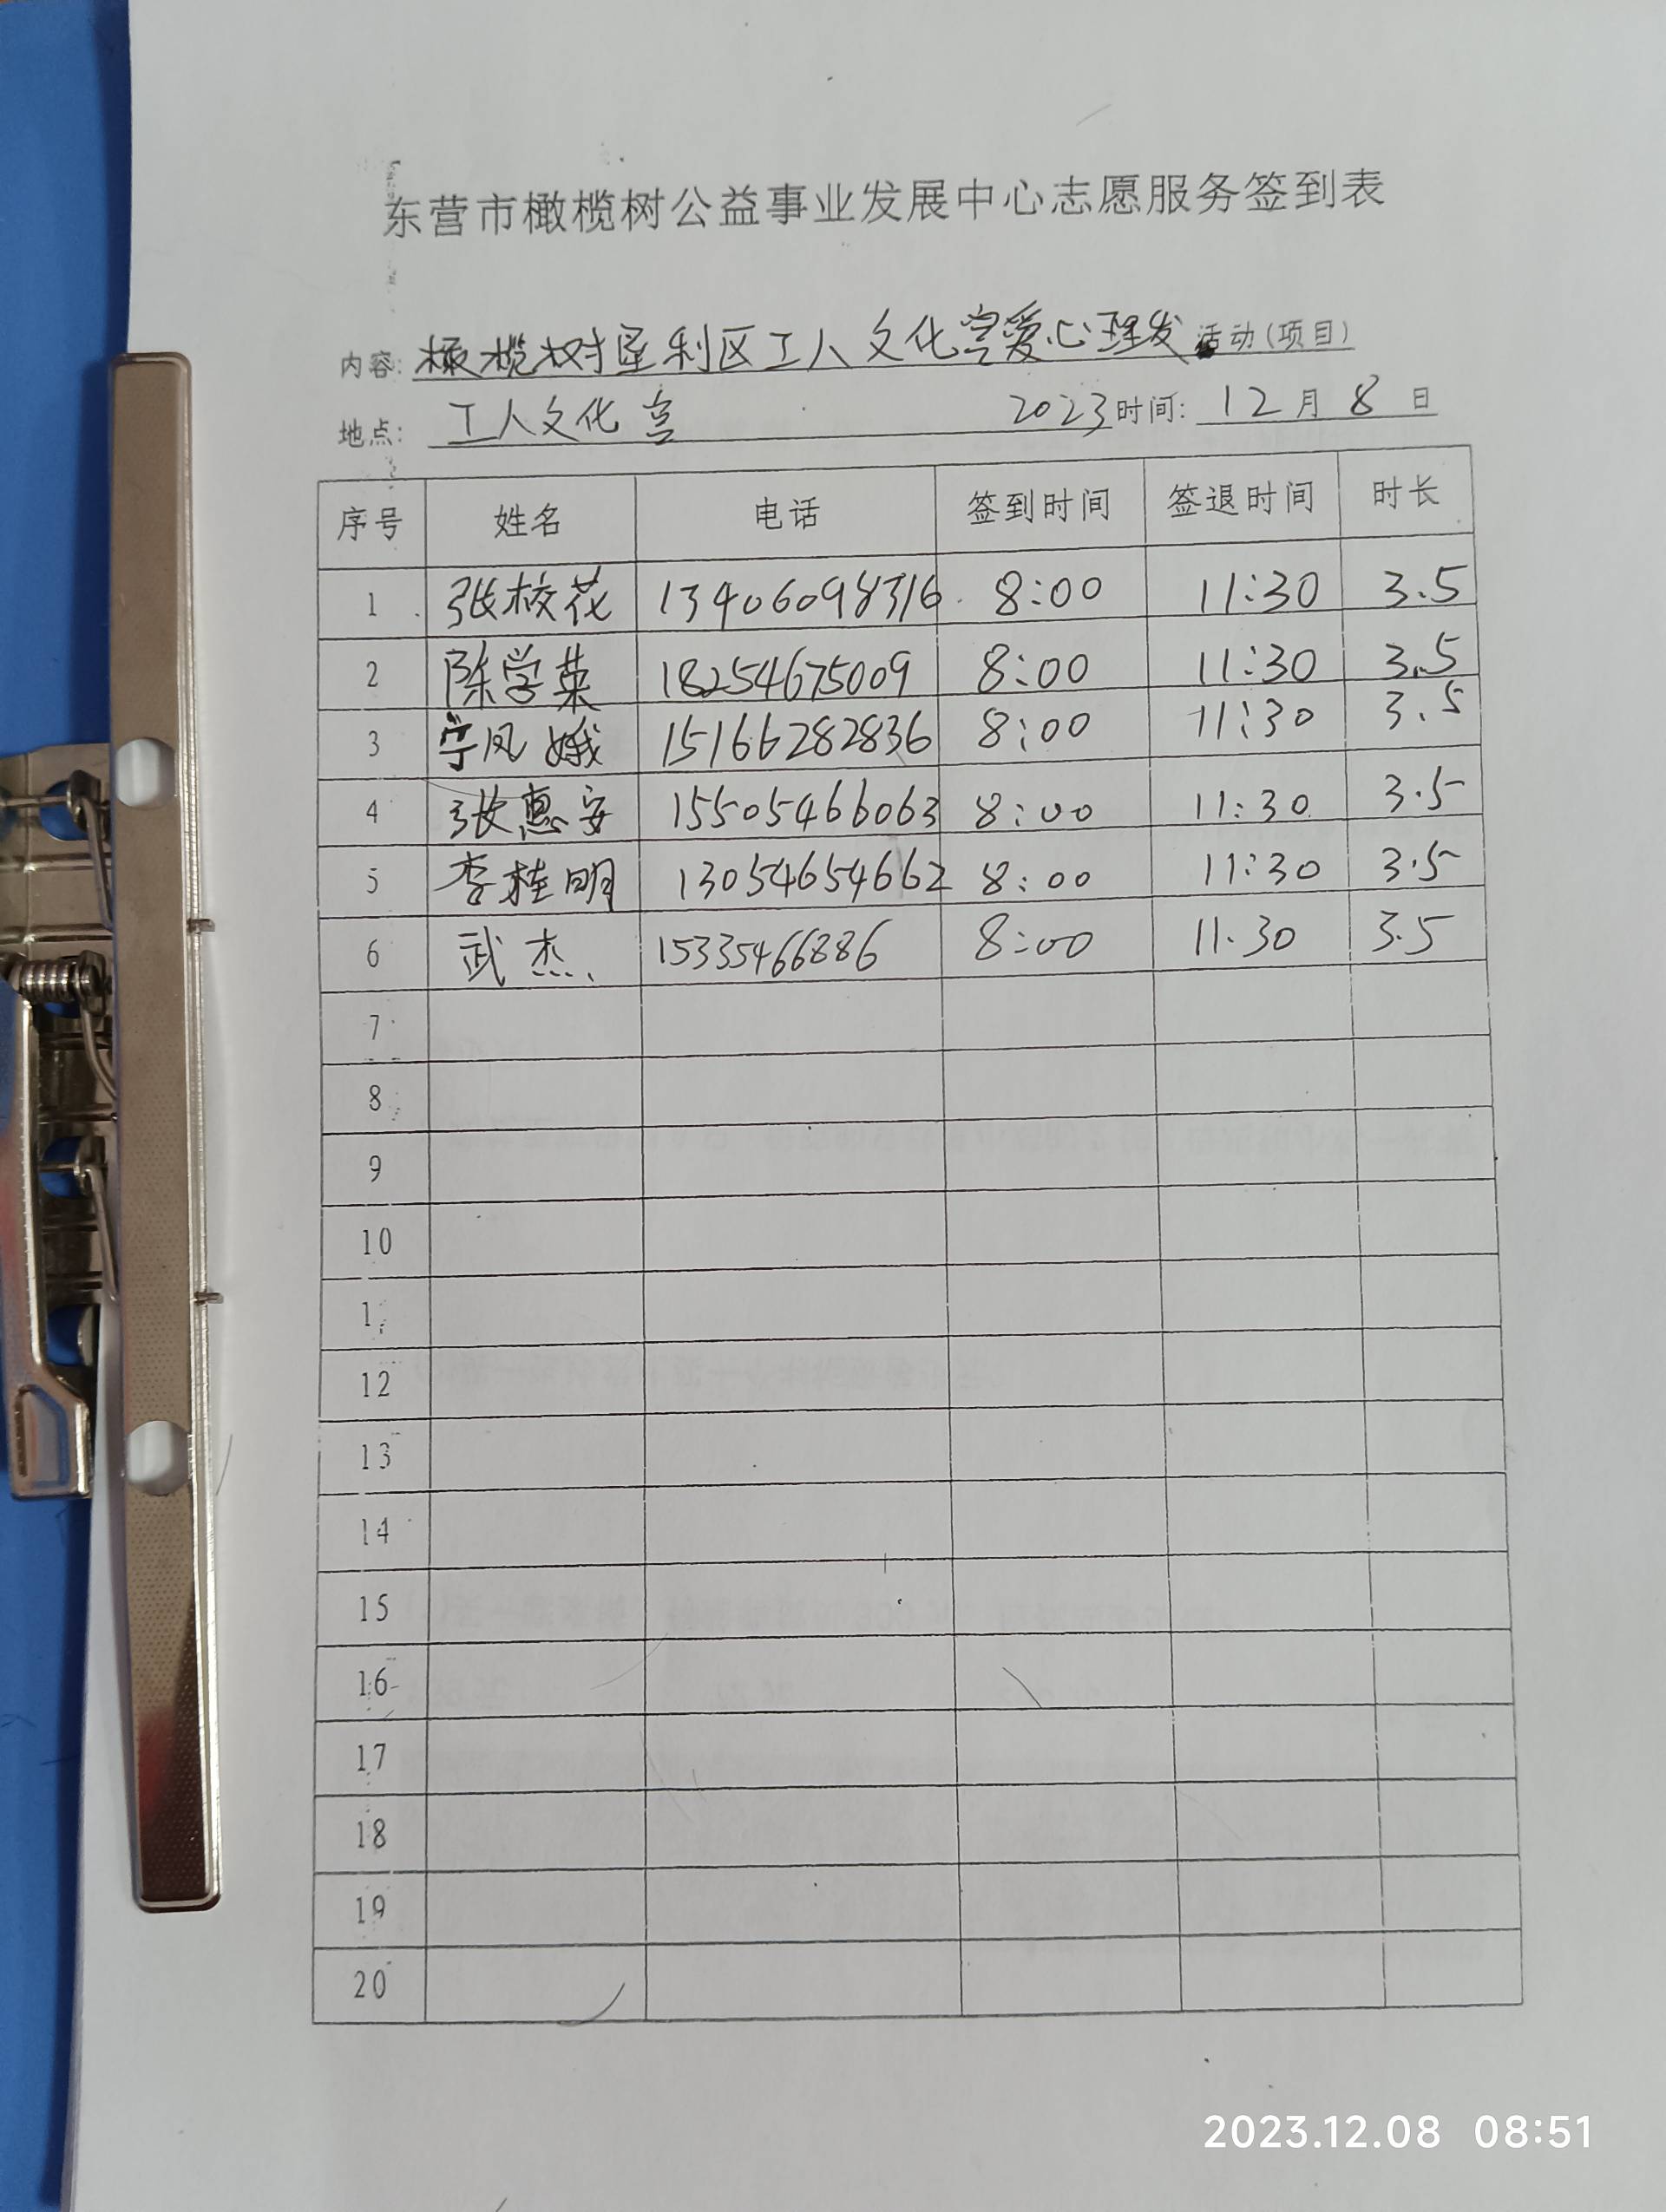 东营市橄榄树公益事业发展中心志愿服务签到表
内容: 橄榄树垦利区工人文化宫爱心理发活动(项目)
地点: 工人文化宫 2023时间: 12月8日
序号 姓名 电话 签到时间 签退时间 时长
1 张校花 13406098316 8:00 11:30 3.5
2 陈学英 18254675009 8:00 11:30 3.5
3 宁凤娥 15166282836 8:00 11:30 3.5
4 张惠安 15505466063 8:00 11:30 3.5
5 李桂明 13054654662 8:00 11:30 3.5
6 武杰 15335466886 8:00 11.30 3.5
7
8
9
10
1
12
13
14
15
16
17
18
19
20
2023.12.08 08:51